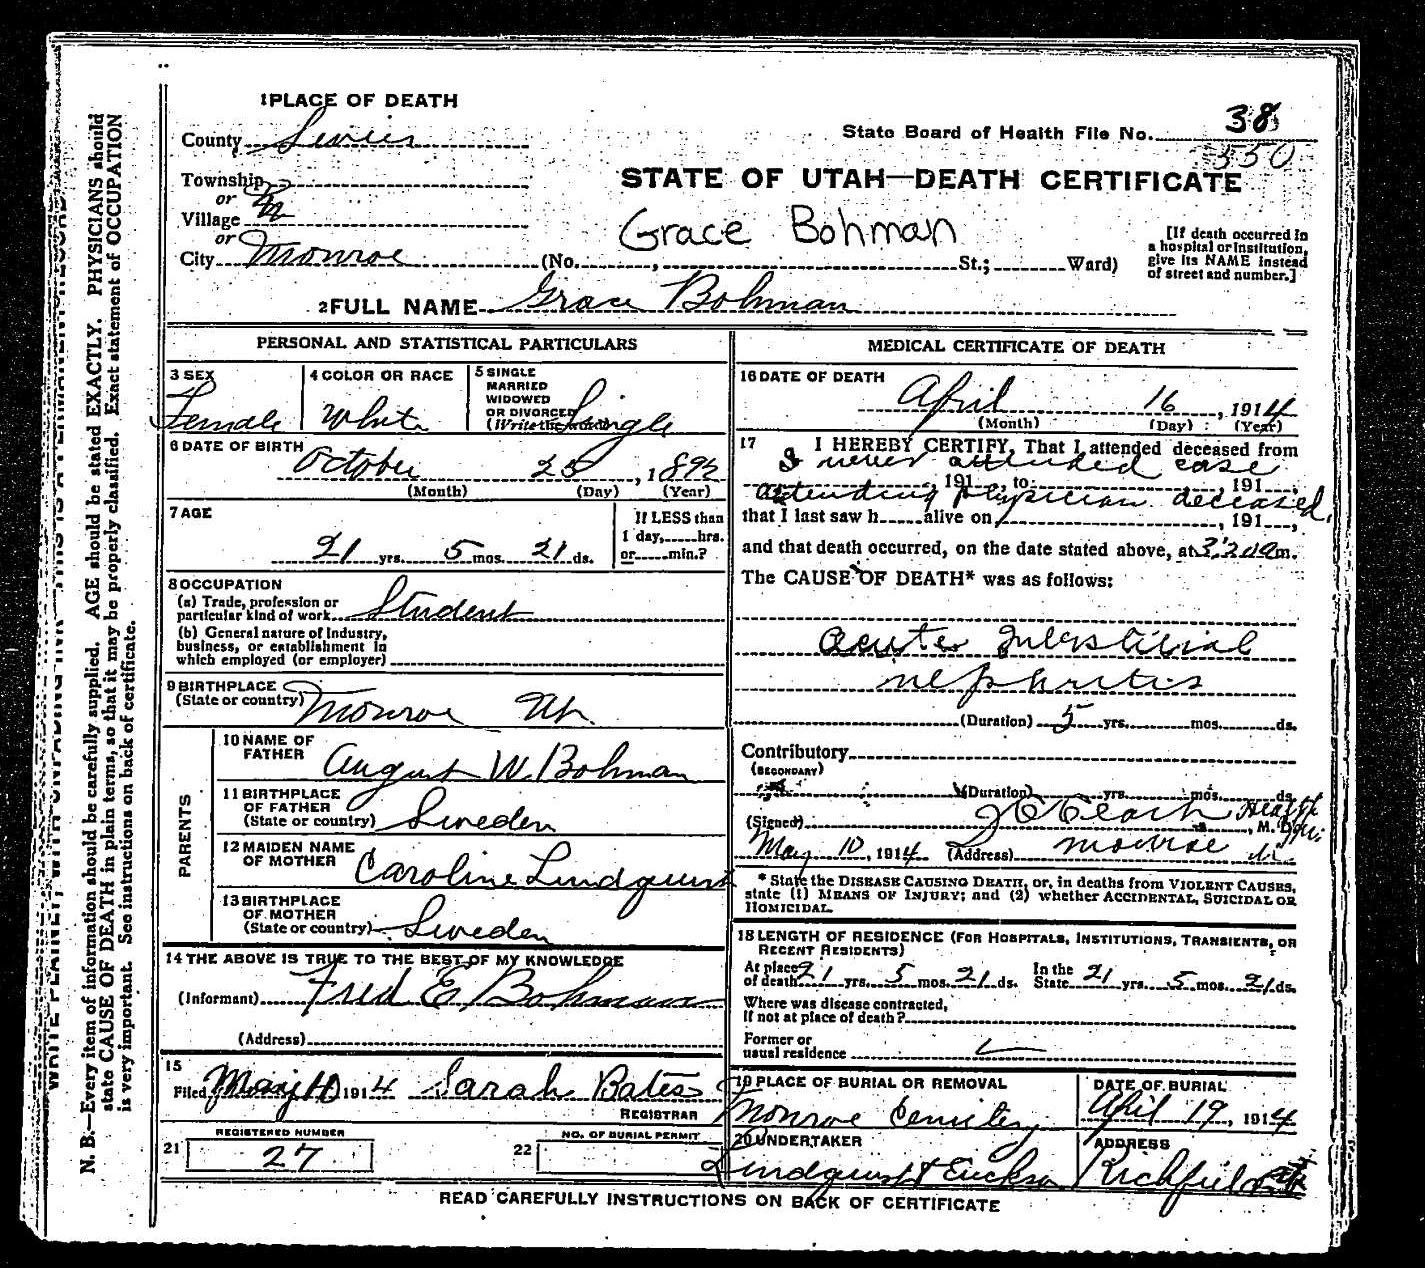 1 PLACE OF DEATH
County Sevier
State Board of Health File No. 38
350
Township
or
Village
or
City Monroe
STATE OF UTAH—DEATH CERTIFICATE
Grace Bohman
(No. , St.; Ward)
[If death occurred in
a hospital or institution,
give its NAME instead
of street and number.]
2 FULL NAME Grace Bohman
PERSONAL AND STATISTICAL PARTICULARS
3 SEX
Female
4 COLOR OR RACE
White
5 SINGLE
MARRIED
WIDOWED
OR DIVORCED
(Write the word)
Single
6 DATE OF BIRTH
October 25, 1892
(Month) (Day) (Year)
7 AGE
21 yrs. 5 mos. 21 ds.
If LESS than
1 day, hrs.
or min.?
8 OCCUPATION
(a) Trade, profession or
particular kind of work Student
(b) General nature of industry,
business, or establishment in
which employed (or employer)
9 BIRTHPLACE
(State or country) Monroe Ut.
PARENTS
10 NAME OF
FATHER August W. Bohman
11 BIRTHPLACE
OF FATHER
(State or country) Sweden
12 MAIDEN NAME
OF MOTHER Caroline Lindquist
13 BIRTHPLACE
OF MOTHER
(State or country) Sweden
14 THE ABOVE IS TRUE TO THE BEST OF MY KNOWLEDGE
(Informant) Fred E. Bohman
(Address)
15
Filed May 10 1914 Sarah Bates
REGISTRAR
21 REGISTERED NUMBER
27
22 NO. OF BURIAL PERMIT
MEDICAL CERTIFICATE OF DEATH
16 DATE OF DEATH
April 16, 1914
(Month) (Day) (Year)
17 I HEREBY CERTIFY, That I attended deceased from
I never attended case
, 191 , to , 191 ,
attending physician deceased.
that I last saw h alive on , 191 ,
and that death occurred, on the date stated above, at 3:20 a m.
The CAUSE OF DEATH* was as follows:
Acute Interstitial
nephritis
(Duration) 5 yrs. mos. ds.
Contributory
(SECONDARY)
(Duration) yrs. mos. ds.
(Signed) Health
, M. D.
May 10, 1914 (Address) Monroe
* State the DISEASE CAUSING DEATH, or, in deaths from VIOLENT CAUSES,
state (1) MEANS OF INJURY; and (2) whether ACCIDENTAL, SUICIDAL OR
HOMICIDAL.
18 LENGTH OF RESIDENCE (FOR HOSPITALS, INSTITUTIONS, TRANSIENTS, OR
RECENT RESIDENTS)
At place
of death 21 yrs. 5 mos. 21 ds. In the
State 21 yrs. 5 mos. 21 ds.
Where was disease contracted,
If not at place of death?
Former or
usual residence
19 PLACE OF BURIAL OR REMOVAL
Monroe Cemetery
DATE OF BURIAL
April 19, 1914
20 UNDERTAKER
Lindquist & Erickson
ADDRESS
Richfield
READ CAREFULLY INSTRUCTIONS ON BACK OF CERTIFICATE
N. B.—Every item of information should be carefully supplied. AGE should be stated EXACTLY. PHYSICIANS should
state CAUSE OF DEATH in plain terms, so that it may be properly classified. Exact statement of OCCUPATION
is very important. See instructions on back of certificate.